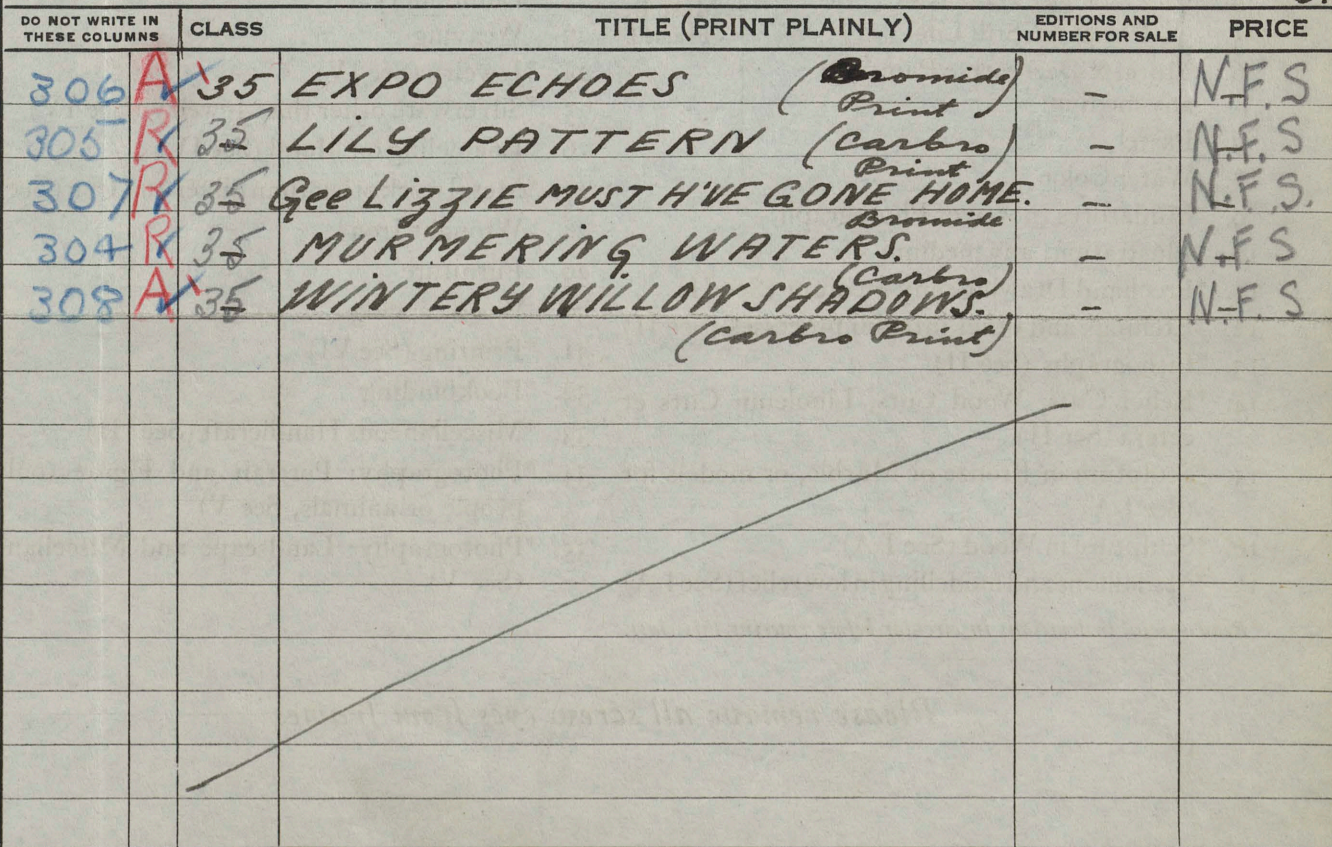 DO NOT WRITE IN THESE COLUMNS CLASS TITLE (PRINT PLAINLY) EDITIONS AND NUMBER FOR SALE PRICE
306 A 35 EXPO ECHOES (Bromide Print) – N.F.S
305 R 35 LILY PATTERN (Carbro Print) – N.F.S
307 R 35 Gee LIZZIE MUST H'VE GONE HOME. Bromide – N.F.S.
304 R 35 MURMERING WATERS. (Carbro) – N.F.S
308 A 35 WINTERY WILLOW SHADOWS. – N.F.S
(Carbro Print)